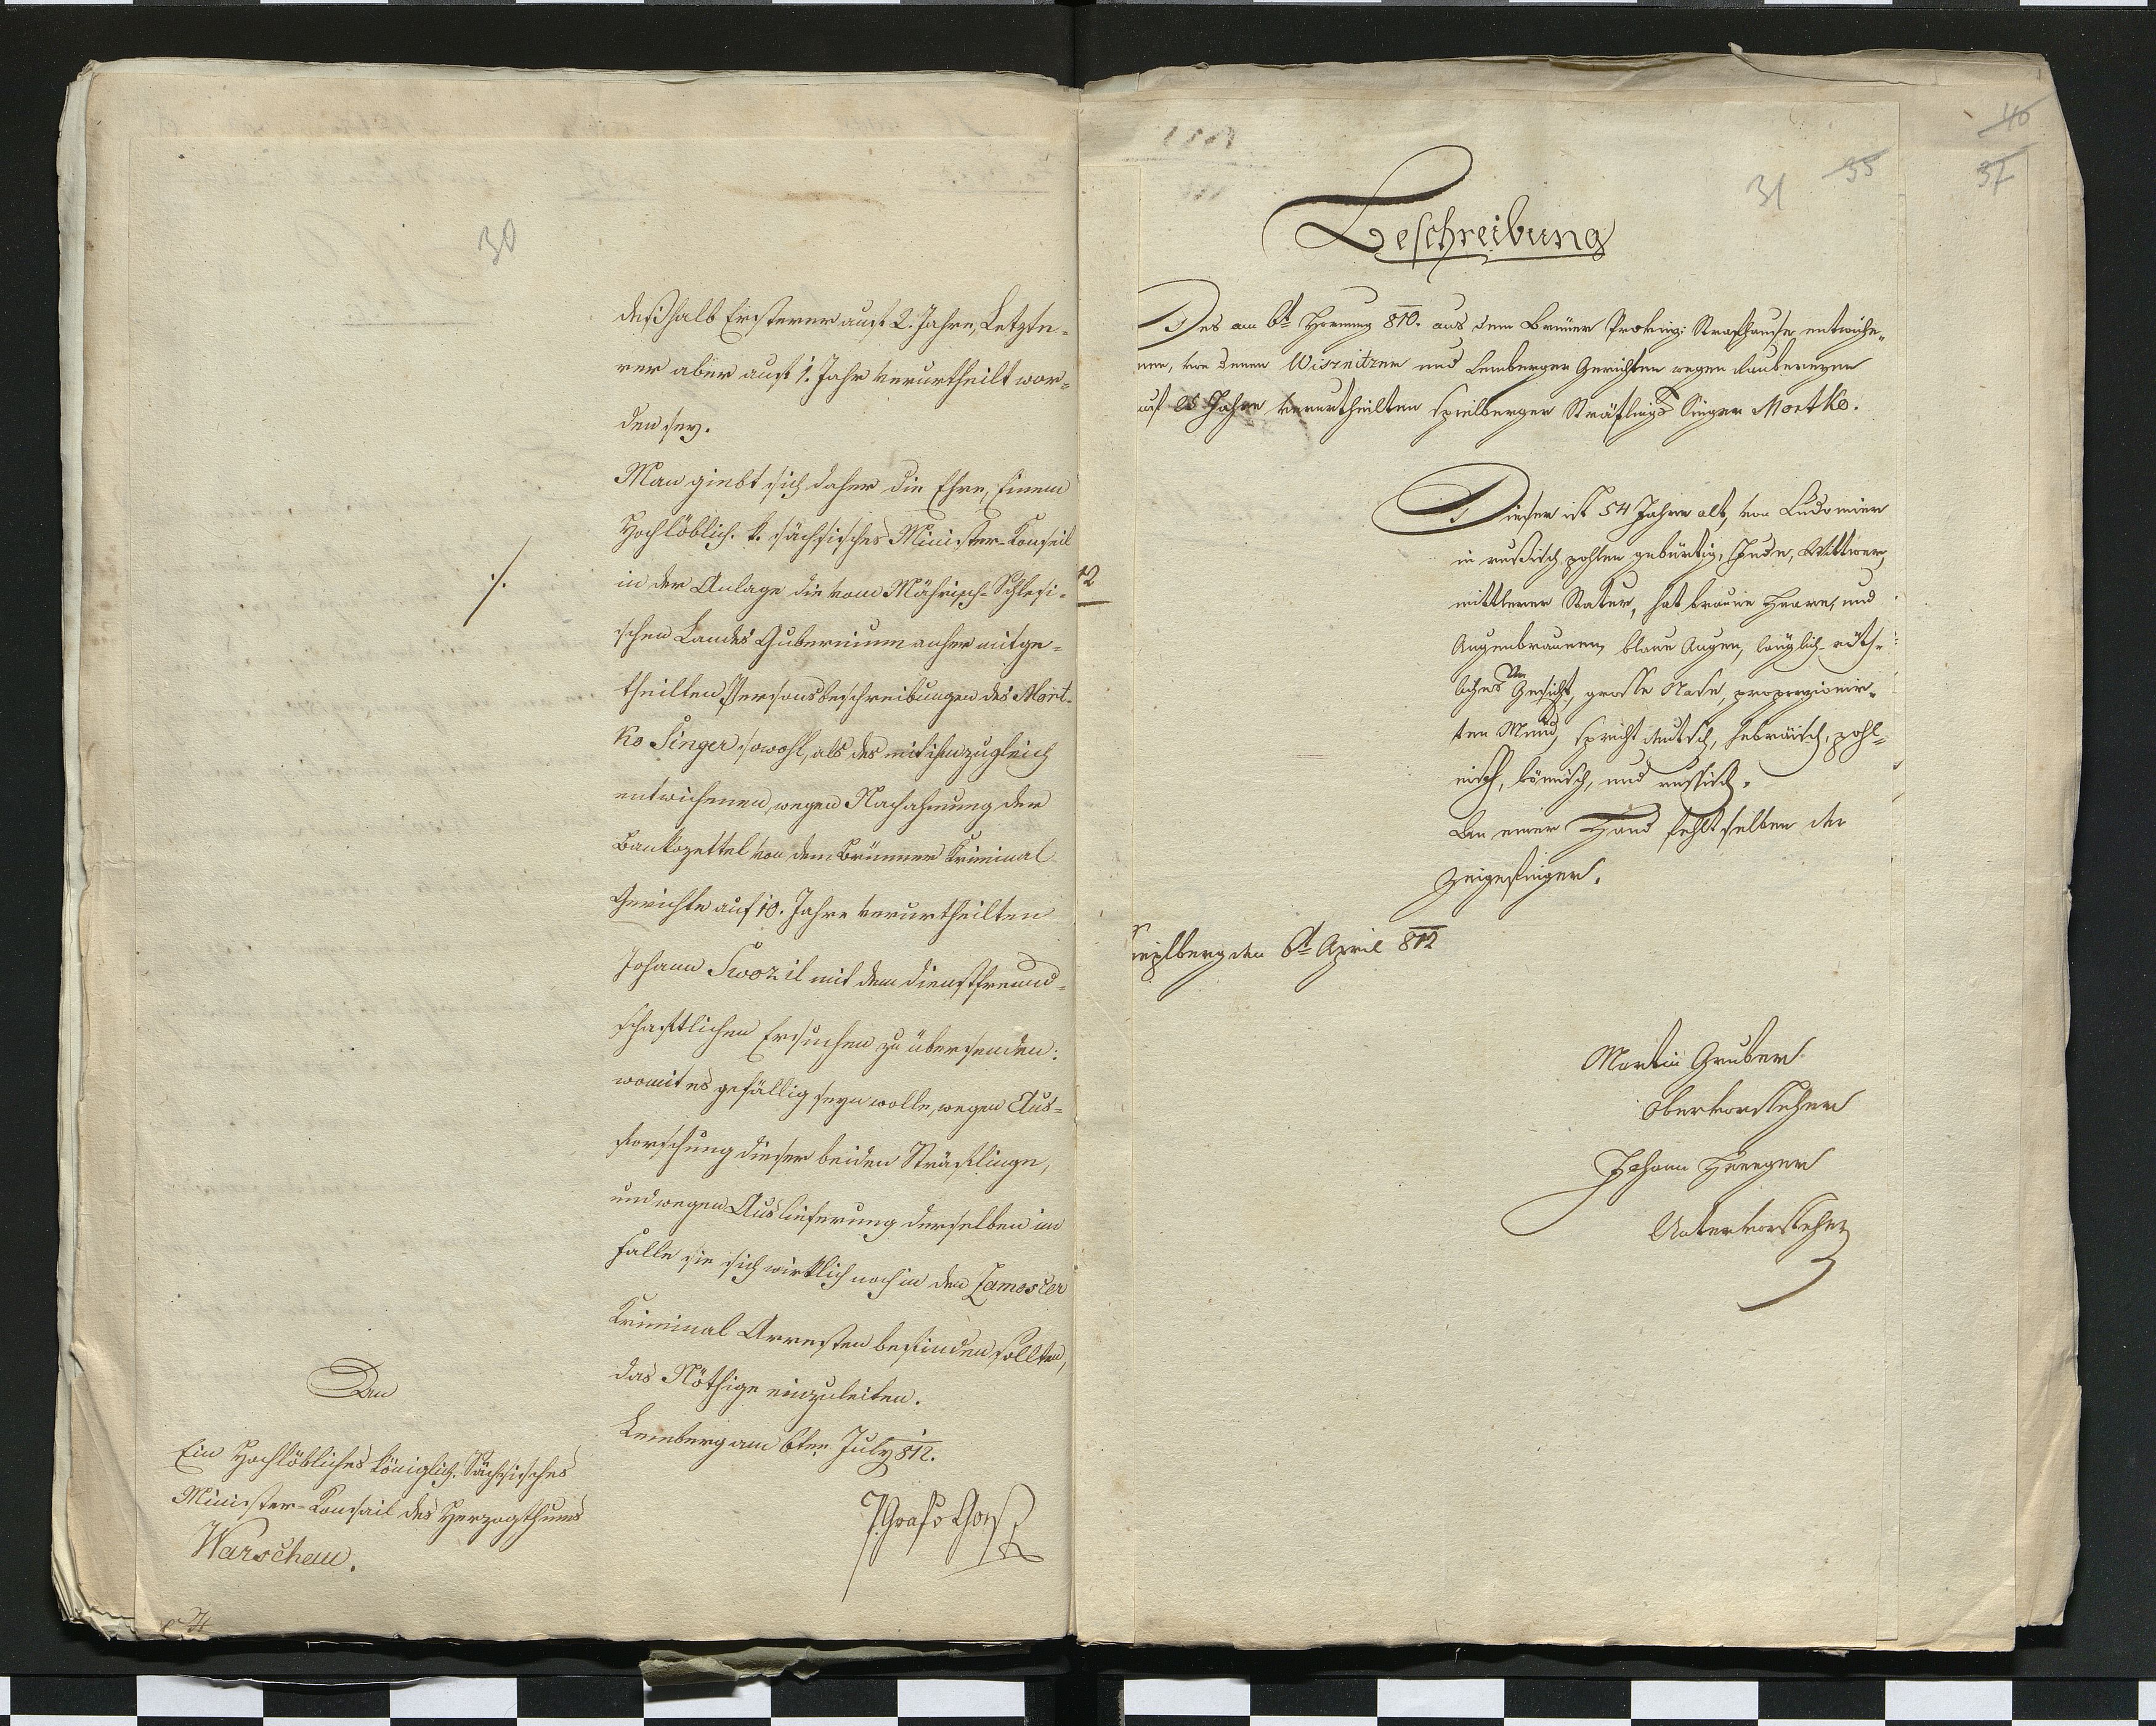 30
deßhalb Ersterer auf 2. Jahre, Letzte-
rer aber auf 1. Jahr verurtheilt wor-
den sey.
Man giebt sich daher die Ehre, Einem
Hochlöblich. k. sächsisches Minister-Conseil
./.
in der Anlage die vom Mährisch-Schlesi-
schen Landes Gubernium anher mitge-
theilten Personsbeschreibungen des Mort-
ko Singer sowohl, als des mit ihm zugleich
entwichenen, wegen Nachahmung der
Bankozettel von dem Brünner Kriminal
Gerichte auf 10. Jahre verurtheilten
Johann Swozil mit dem dienstfreund-
schaftlichen Ersuchen zu übersenden:
womit es gefällig seyn wolle, wegen Aus-
forschung dieser beiden Sträflinge,
und wegen Auslieferung derselben im
Falle sie sich wirklich noch in den Zamoscer
Kriminal Arresten befinden sollten,
das Nöthige einzuleiten.
Lemberg am 6ten July 812.
An
Ein Hochlöbliches königlich. Sächsisches
Minister-Conseil des Herzogthums
Warschau.
31
35
40
37
12
Beschreibung
Des am 6t Hornung 810. aus dem Brüner Provinz: Strafhause entwiche-
nen, von denen Wisznitzer und Lemberger Gerichten wegen Raubereyen
auf Jahre verurtheilten Spielberger Sträflings Singer Mortko.
Dieser ist 54 Jahre alt, von Ludomier
in rußisch pohlen gebürtig, Jude, Wittwer,
mittlerer Statur, hat braune Haare, und
Augenbraunen, blaue Augen, länglich-röth-
liches Gesicht, grosse Nase, proporzionir-
ten Mund, spricht deutsch, hebräisch, pohl-
nisch, bömisch, und russisch.
An einer Hand fehlt selben der
Zeigefinger.
Spielberg den 6t April 812
Martin Gruber
Obervorsteher
Johann
Untervorsteher